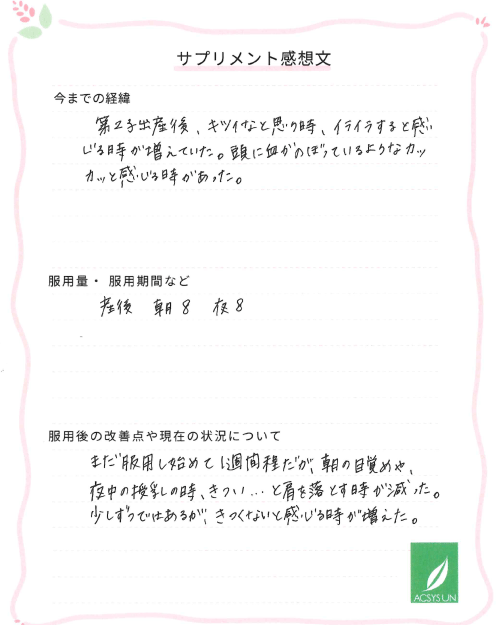 サプリメント感想文
今までの経緯
第2子出産後、キツイなと思う時、イライラすると感
じる時が増えていた。頭に血がのぼっているようなカッ
カッと感じる時があった。
服用量・ 服用期間など
産後 朝8 夜8
服用後の改善点や現在の状況について
まだ服用し始めて1週間程だが、朝の目覚めや、
夜中の授乳の時、きつい…と肩を落とす時が減った。
少しずつではあるが、きつくないと感じる時が増えた。
ACSYSUN